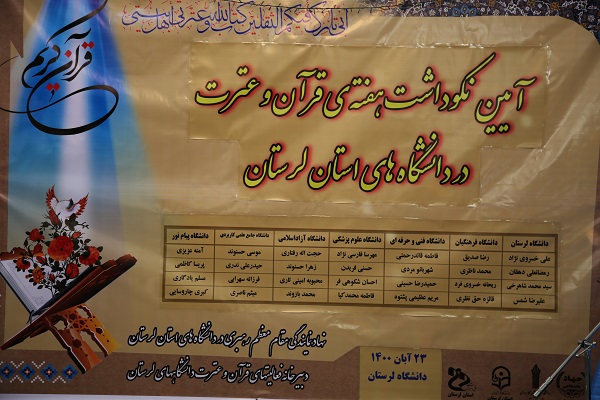 انی تارک فیکم الثقلین کتاب الله و عترتی اهل بیتی
قرآن کریم
آیین نکوداشت هفته ی قرآن و عترت
در دانشگاه های استان لرستان
دانشگاه لرستان دانشگاه فرهنگیان دانشگاه فنی و حرفه ای دانشگاه علوم پزشکی دانشگاه آزاداسلامی دانشگاه جامع علمی کاربردی دانشگاه پیام نور
علی خسروی نژاد رضا صدیق فاطمه قائدرحمتی مهرسا فارسی نژاد حجت اله رفتاری موسی حسنوند آمنه عزیزی
رمضانعلی دهقان محمد ناظری شهربانو مردی حسنی فریدن زهرا حسنوند حیدرعلی نذری پریسا کاظمی
سید محمد شاهرخی ریحانه خسروی فرد حمیدرضا حسینی احسان شکوهی فر محبوبه امینی فرزانه سهرابی مسلم یادگاری
علیرضا شمس فائزه حق نظری مریم عظیمی پشتوه فاطمه محمدکیا محمد بازوند میثم ناصری کبری چاروسایی
نهاد نمایندگی مقام معظم رهبری در دانشگاه های استان لرستان
دبیرخانه فعالیتهای قرآن و عترت دانشگاههای لرستان
۲۳ آبان ۱۴۰۰
دانشگاه لرستان
جهاد